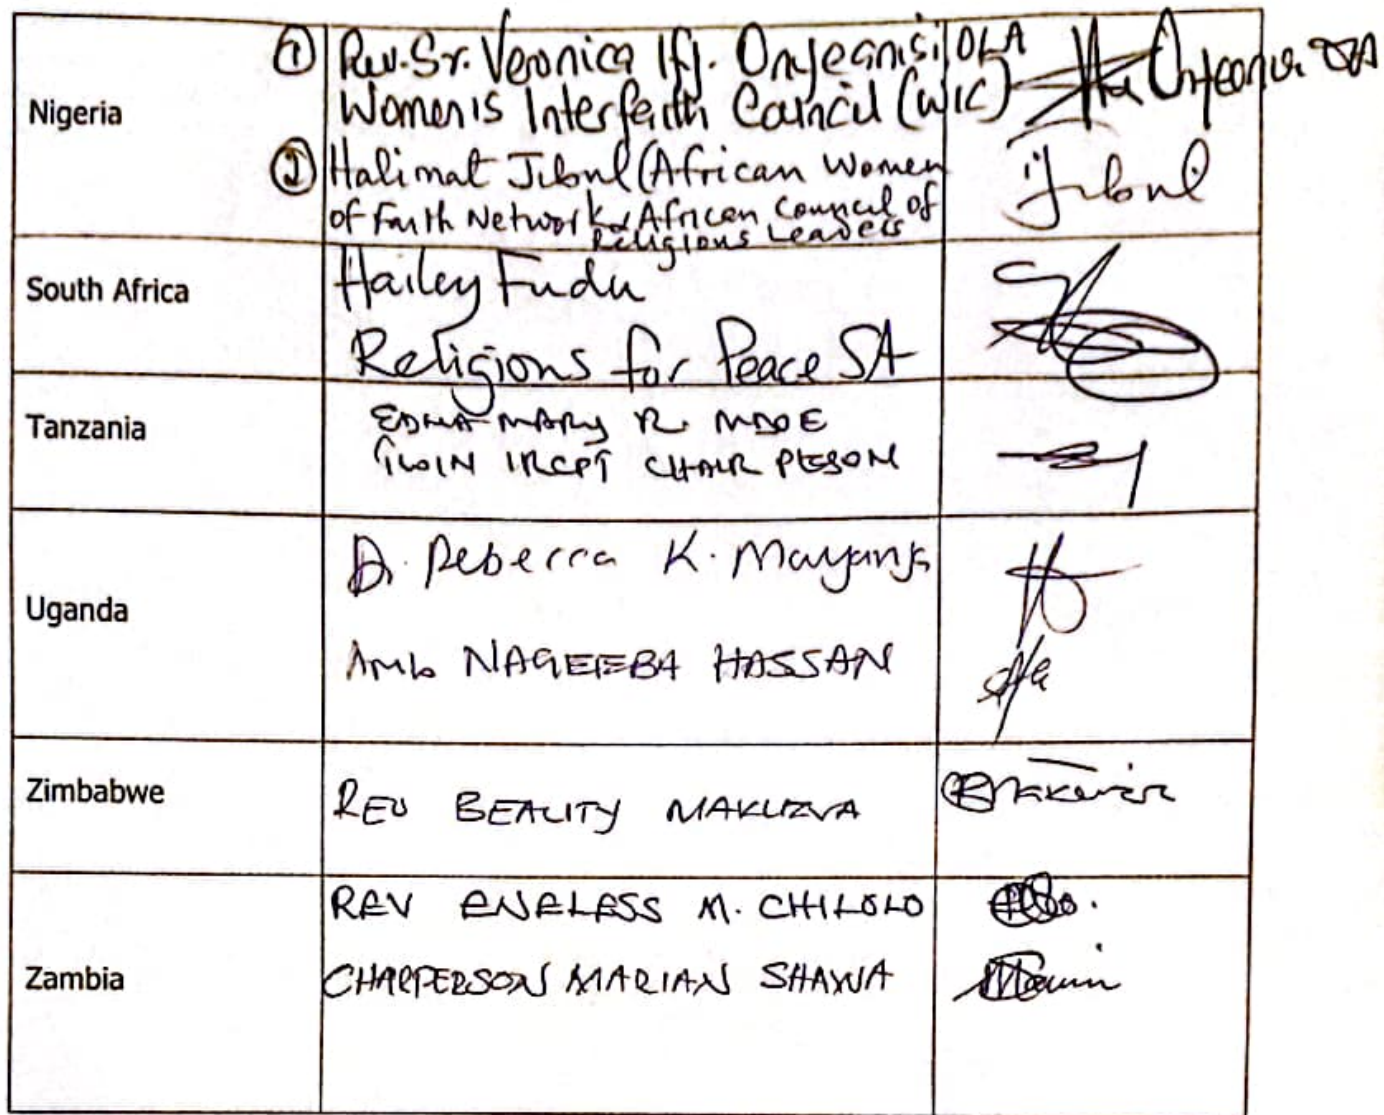 Nigeria
① Rev. Sr. Veronica Ify. Onyeanisi, OLA
Women's Interfaith Council (WIC)
② Halimat Jibril (African Women
of Faith Network & African Council of
Religious Leaders
Jibril
South Africa
Hailey Fudu
Religions for Peace SA
Tanzania
EDNA MARY R. MDOE
IRCPT CHAIR PESON
Uganda
Dr. Rebecca K. Mayanja
Amb NAGEEBA HASSAN
Zimbabwe
REV BEAUTY MAKUZVA
Zambia
REV ENELESS M. CHILOLO
CHARPERSON MARIAN SHAWA